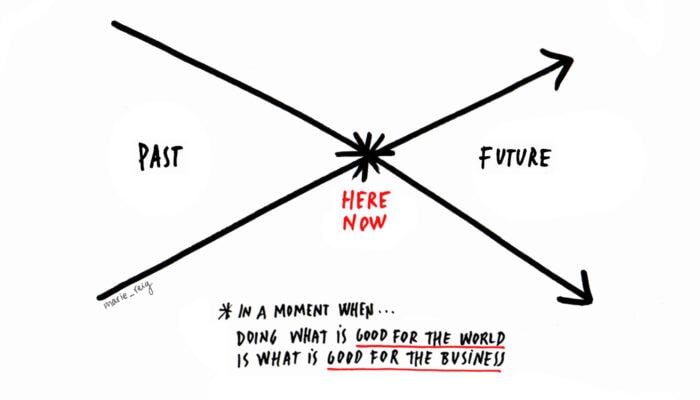 PAST
FUTURE
HERE
NOW
marie_reig
* IN A MOMENT WHEN...
DOING WHAT is GOOD FOR THE WORLD
IS WHAT iS GOOD FOR THE BUSINESS